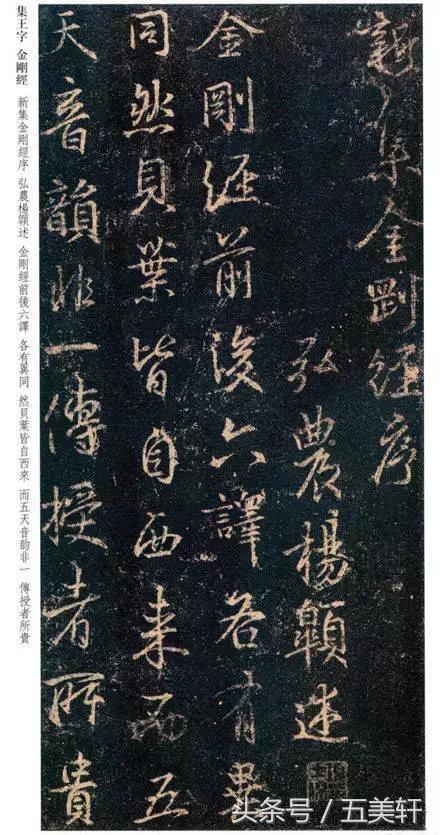 新集金剛經序
弘農楊顗述
金剛經前後六譯各有異
同然貝葉皆自西來而五
天音韻非一傳授者所貴
集王字 金剛經 新集金剛經序 弘農楊顗述 金剛經前後六譯 各有異同 然貝葉皆自西來 而五天音韵非一 傳授者所貴
头条号 / 五美轩